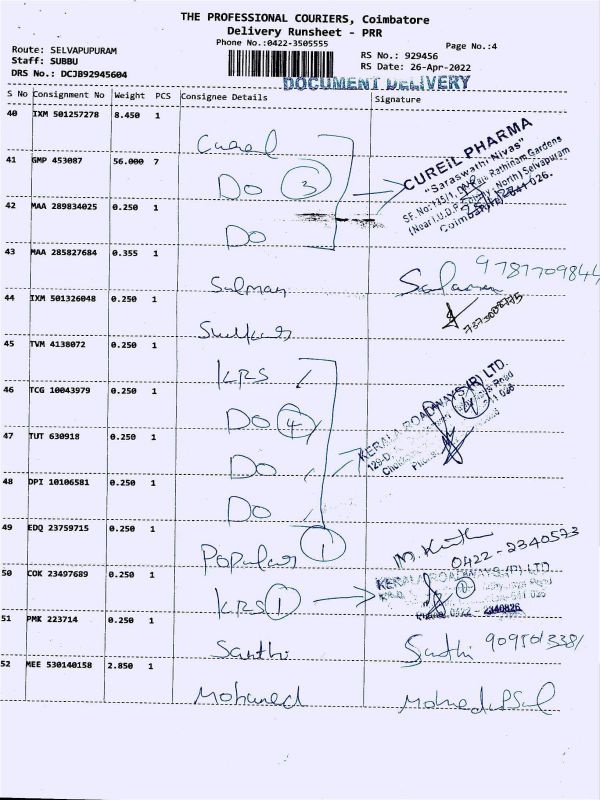 THE PROFESSIONAL COURIERS, Coimbatore
Delivery Runsheet - PRR
Phone No.:0422-3505555
Page No.:4
Route: SELVAPUPURAM
Staff: SUBBU
DRS No.: DCJB92945604
RS No.: 929456
RS Date: 26-Apr-2022
DOCUMENT DELIVERY
S No Consignment No Weight PCS Consignee Details Signature
40 IXM 501257278 8.450 1
Cureil
41 GMP 453087 56.000 7
Do 3
CUREIL PHARMA
"Saraswathi Nivas"
SF. No: 125/1, Rathinam Gardens
(Near) U.D.P. North) Selvapuram
Coimbatore 641 026.
42 MAA 289834025 0.250 1
Do
43 MAA 285827684 0.355 1
Salman
44 IXM 501326048 0.250 1
45 TVM 4138072 0.250 1
KRS
46 TCG 10043979 0.250 1
Do 4
KERALA ROADWAYS (P) LTD.
47 TUT 630918 0.250 1
Do
48 DPI 10106581 0.250 1
Do
49 EDQ 23759715 0.250 1
Popular 1
0422-2340573
50 COK 23497689 0.250 1
KRS 1
KERALA ROADWAYS (P) LTD
51 PMK 223714 0.250 1
Santhi
Santhi
52 MEE 530140158 2.850 1
Mohamed